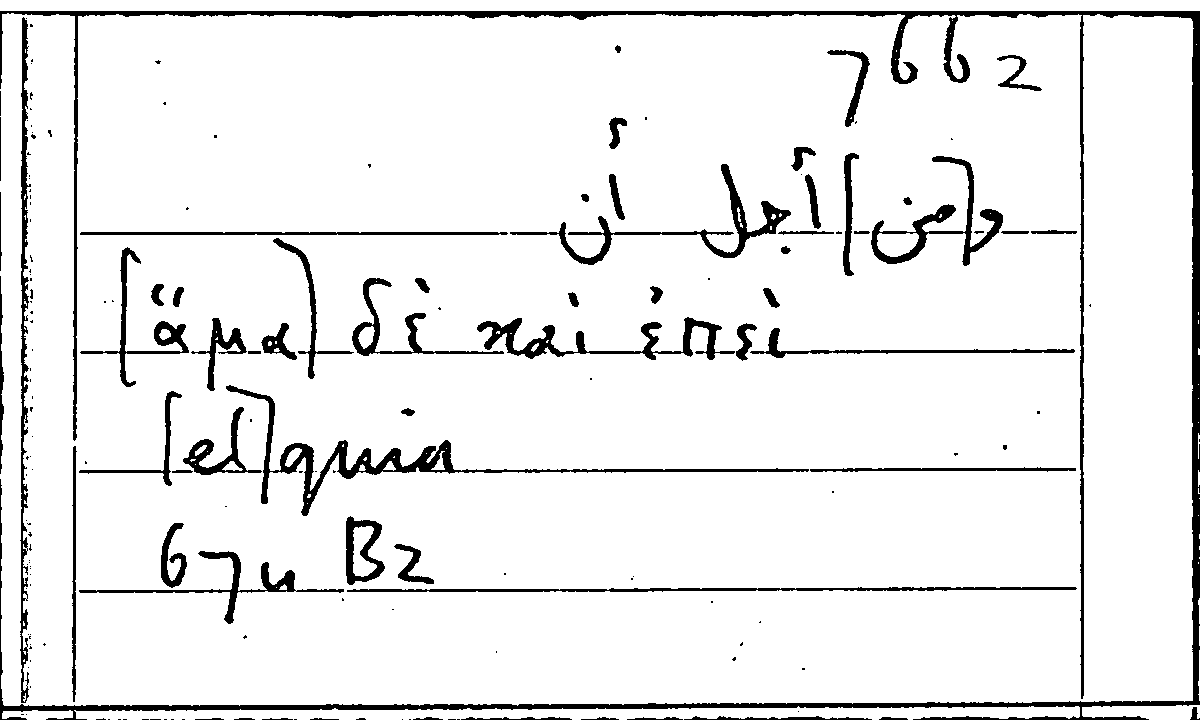 7662
و[من] أجل أن
[ἅμα] δὲ καὶ ἐπεὶ
[et] quia
67u B2